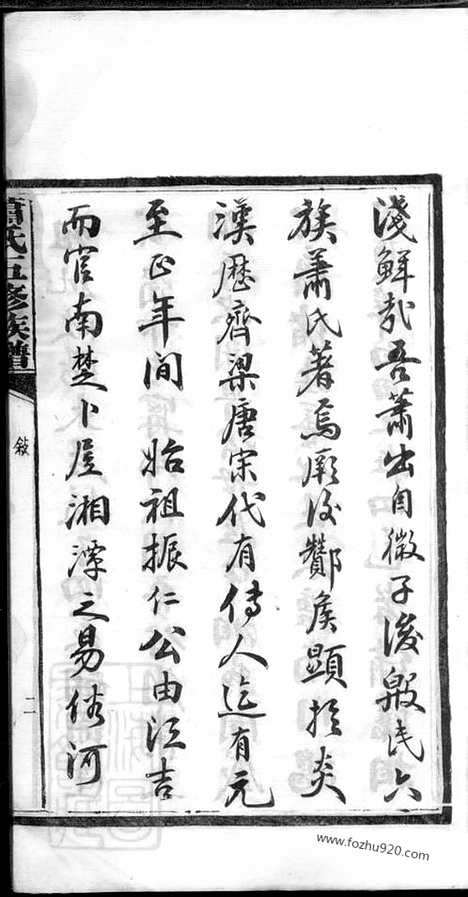 淺鮮哉吾蕭出自微子後殷民六
族蕭氏著焉厥後酇侯顯於炎
漢歷齊梁唐宋代有傳人迄有元
至正年間 始祖振仁公由江吉
而官南楚卜居湘潭之易俗河
蕭氏五修族譜
敘
二
www.fozhu920.com